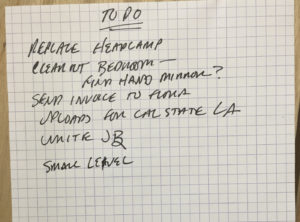 TO DO
REPLACE HEADLAMP
CLEAR OUT BEDROOM —
FIND HAND MIRROR?
SEND INVOICE TO FIONA
UPLOADS FOR CAL STATE LA
WRITE JB
SMALL LEVEL